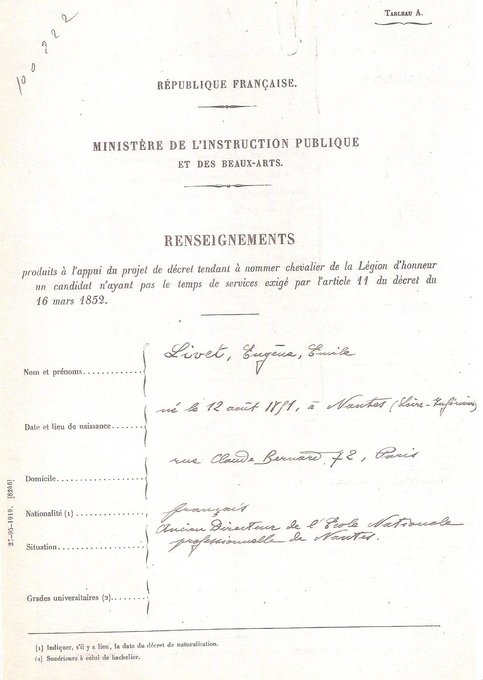 TABLEAU A.
100222
RÉPUBLIQUE FRANÇAISE.
MINISTÈRE DE L'INSTRUCTION PUBLIQUE
ET DES BEAUX-ARTS.
RENSEIGNEMENTS
produits à l'appui du projet de décret tendant à nommer chevalier de la Légion d'honneur
un candidat n'ayant pas le temps de services exigé par l'article 11 du décret du
16 mars 1852.
Nom et prénoms. Livet, Eugène, Emile
Date et lieu de naissance. né le 12 août à Nantes (Loire-Inférieure)
Domicile. rue Claude Bernard 72, Paris
Nationalité (1) français
Situation. Ancien Directeur de l'Ecole Nationale
professionnelle de Nantes.
Grades universitaires (2).
(1) Indiquer, s'il y a lieu, la date du décret de naturalisation.
(2) Supérieurs à celui de bachelier.